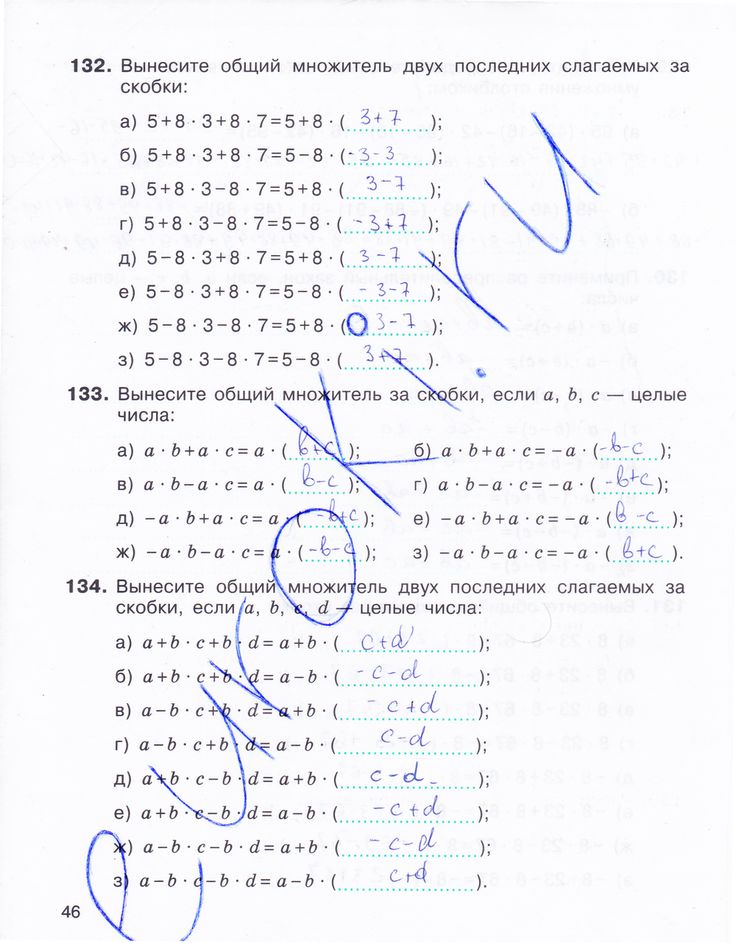 132. Вынесите общий множитель двух последних слагаемых за
скобки:
а) 5+8·3+8·7=5+8·( 3+7 );
б) 5+8·3+8·7=5−8·( -3-3 );
в) 5+8·3−8·7=5+8·( 3-7 );
г) 5+8·3−8·7=5−8·( -3+7 );
д) 5−8·3+8·7=5−8·( 3-7 );
е) 5−8·3+8·7=5−8·( -3-7 );
ж) 5−8·3−8·7=5+8·( 3-7 );
з) 5−8·3−8·7=5−8·( 3+7 ).
133. Вынесите общий множитель за скобки, если a, b, c — целые
числа:
а) a·b+a·c=a·( b+c ); б) a·b+a·c=−a·( -b-c );
в) a·b−a·c=a·( b-c ); г) a·b−a·c=−a·( -b+c );
д) −a·b+a·c=a·( -b+c ); е) −a·b+a·c=−a·( b-c );
ж) −a·b−a·c=a·( -b-c ); з) −a·b−a·c=−a·( b+c ).
134. Вынесите общий множитель двух последних слагаемых за
скобки, если a, b, c, d — целые числа:
а) a+b·c+b·d=a+b·( c+d );
б) a+b·c+b·d=a−b·( -c-d );
в) a−b·c+b·d=a+b·( -c+d );
г) a−b·c+b·d=a−b·( c-d );
д) a+b·c−b·d=a+b·( c-d );
е) a+b·c−b·d=a−b·( -c+d );
ж) a−b·c−b·d=a+b·( -c-d );
з) a−b·c−b·d=a−b·( c+d ).
46